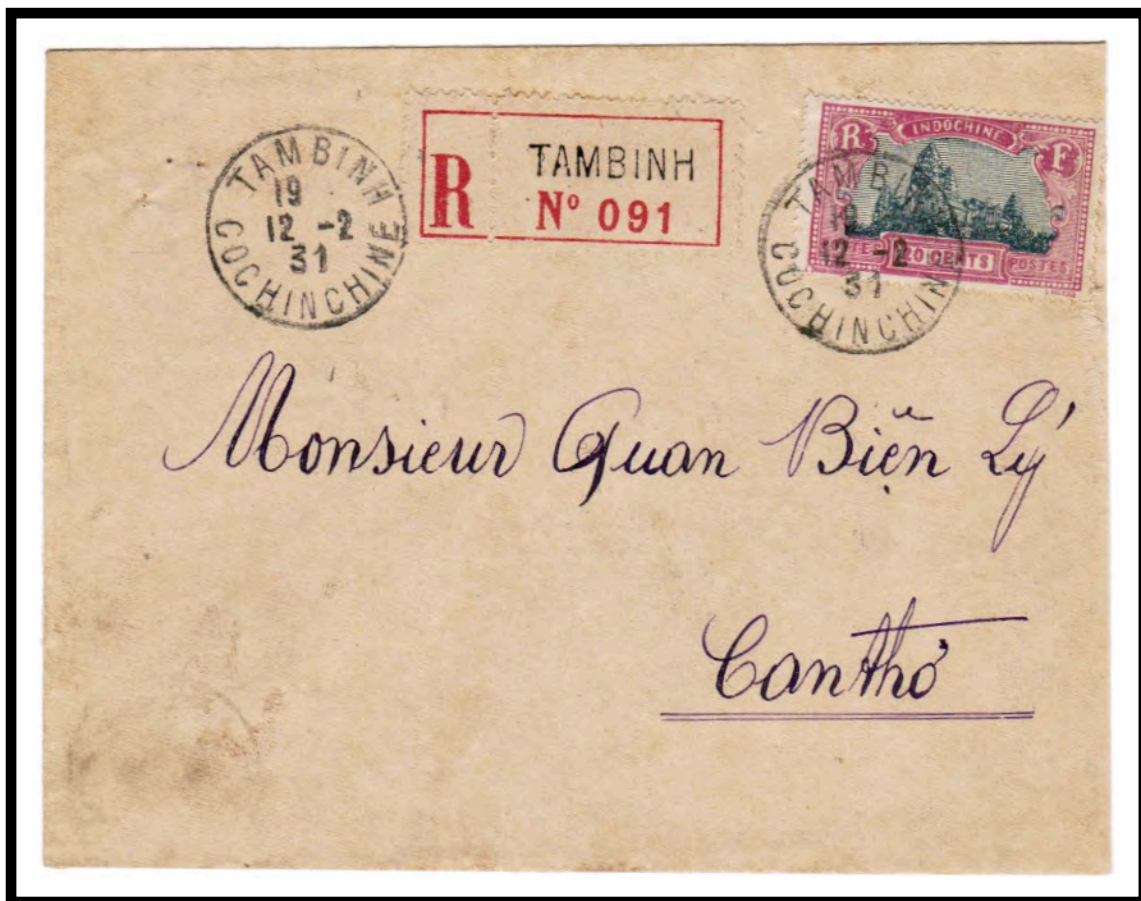 TAMBINH
19
12 -2
31
COCHINCHINE
R TAMBINH
Nº 091
INDOCHINE
R F
POSTES
20 CENTS
POSTES
TAMBINH
19
12 -2
31
COCHINCHINE
Monsieur Quan Biện Lý
Canthơ